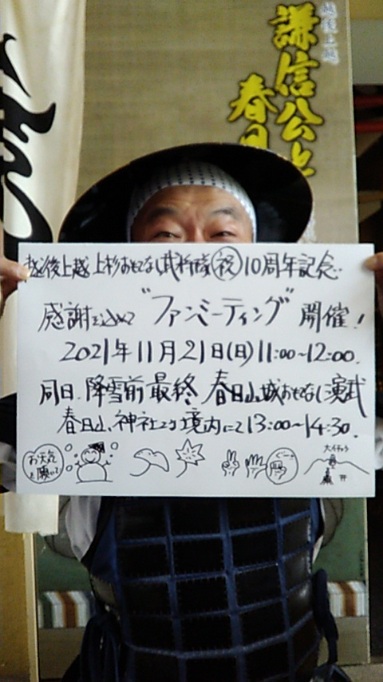 越後上越
謙信公と
春日
越後上越 上杉おもてなし武将隊 ㊗ 10周年記念
感謝を込めて "ファンミーティング" 開催!
2021年11月21日(日)11:00~12:00.
同日、降雪前最終 春日山城おもてなし演武
春日山神社 境内にて13:00~14:30.
お天気